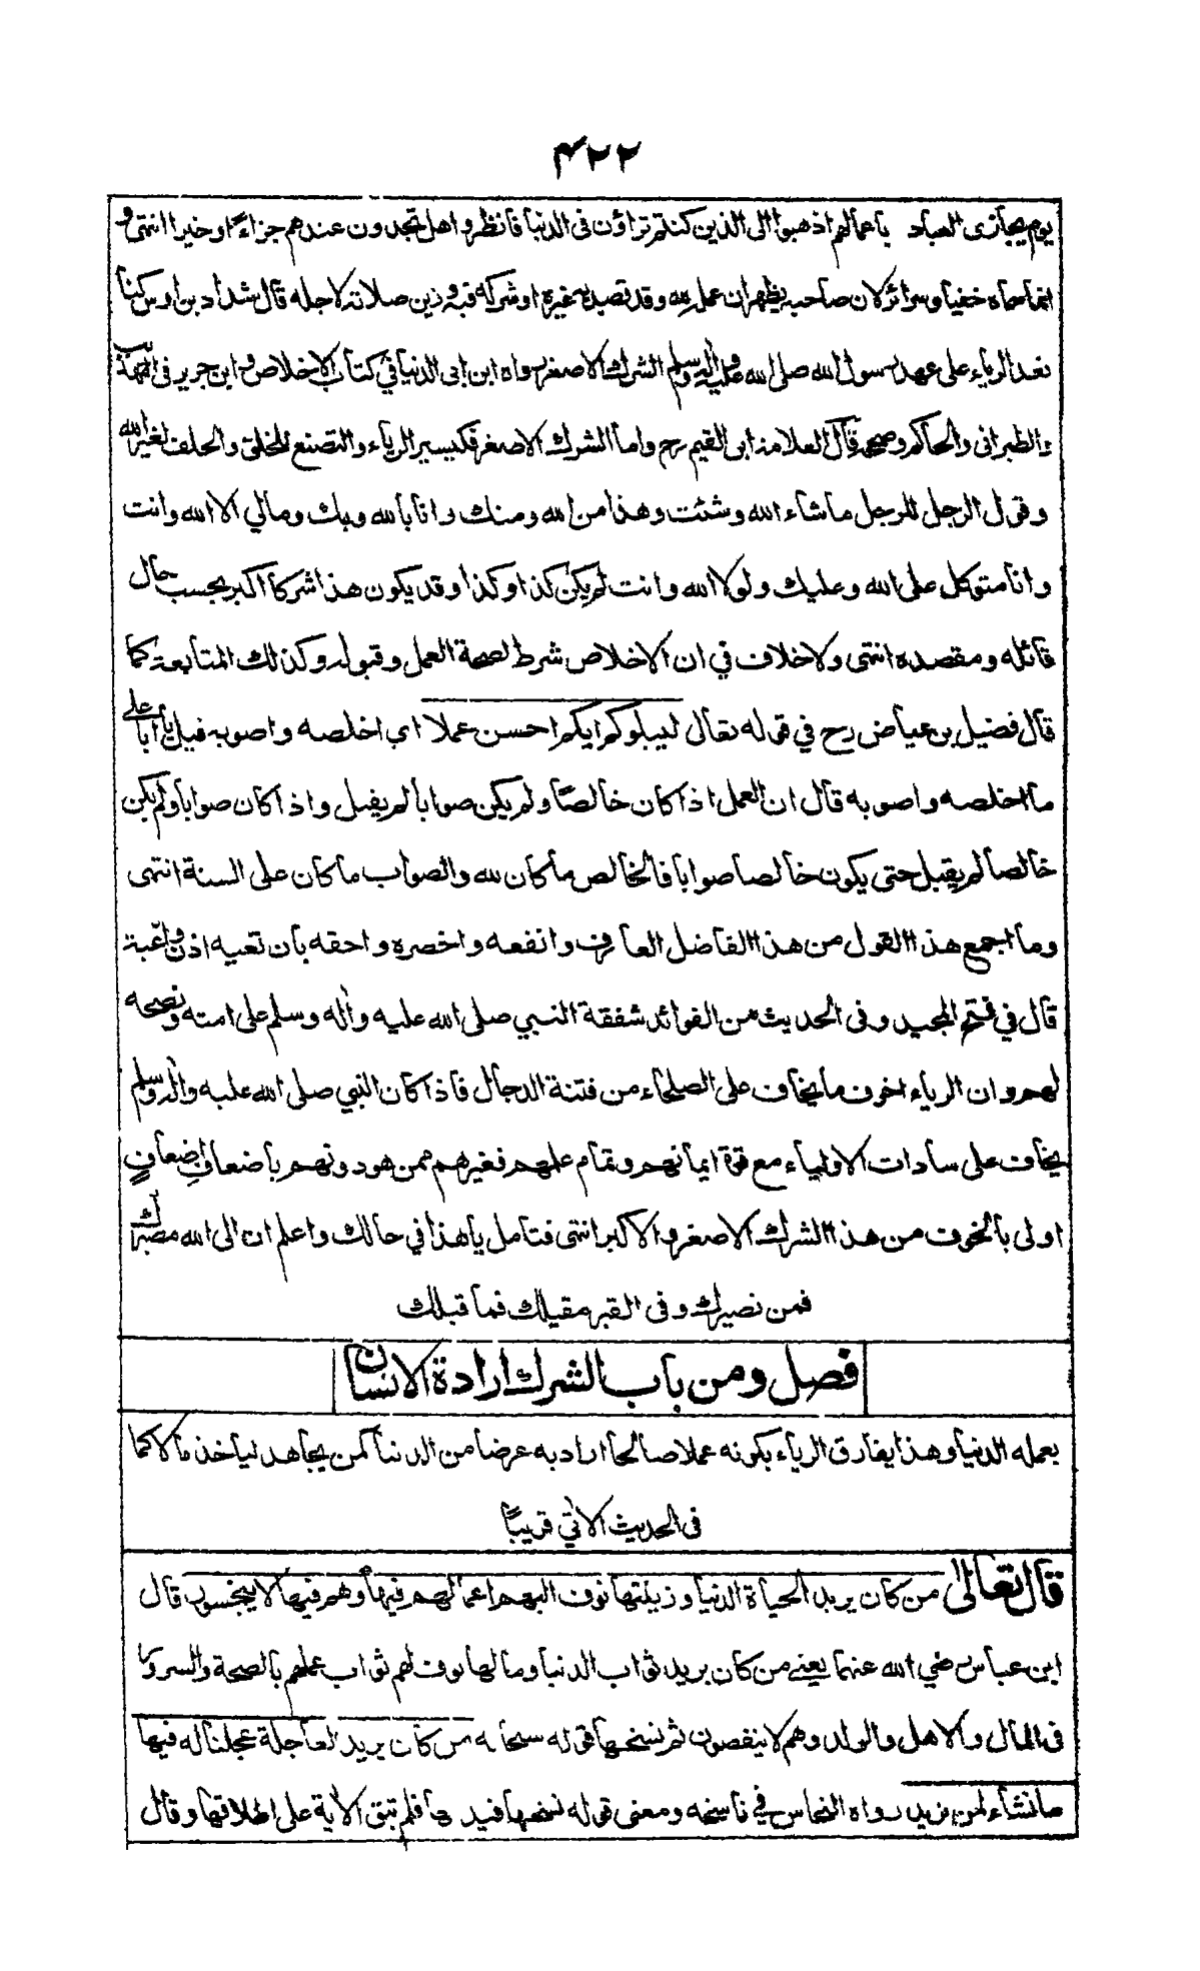 ۴۲۲
يوم يجازى العباد باعمالهم اذهبوا الى الذين كنتم تراؤن فى الدنيا فانظروا هل تجدون عندهم جزاءً او خيرا انتهى و
انما سماه خفيا وسرائر لان صاحبه يظهر ان عمله لله وقد قصد به غيره او شركه فيه وزين صلاته لاجله قال شداد بن اوس كنا
نعد الرياء على عهد رسول الله صلى الله عليه واله وسلم الشرك الاصغر رواه ابن ابى الدنيا فى كتاب الاخلاص وابن جرير فى التهذيب
والطبرانى والحاكم وصححه قال العلامة ابن القيم رح واما الشرك الاصغر فكيسير الرياء والتصنع للخلق والحلف لغير الله
وقول الرجل للرجل ما شاء الله وشئت وهذا من الله ومنك وانا بالله وبك ومالي الا الله وانت
وانا متوكل على الله وعليك ولولا الله وانت لم يكن كذا وكذا وقد يكون هذا شركا اكبر بحسب حال
قائله ومقصده انتهى ولا خلاف في ان الاخلاص شرط لصحة العمل وقبوله وكذلك المتابعة كما
قال فضيل بن عياض رح في قوله تعالى ليبلوكم ايكم احسن عملا اي اخلصه واصوبه قيل يا ابا علي
ما اخلصه واصوبه قال ان العمل اذا كان خالصًا ولم يكن صوابا لم يقبل واذا كان صوابا ولم يكن
خالصا لم يقبل حتى يكون خالصا صوابا فالخالص ما كان لله والصواب ما كان على السنة انتهى
وما اجمع هذا القول من هذا الفاضل العارف وانفعه واخصره واحقه بان تعيه اذن واعية
قال في فتح المجيد وفى الحديث من الفوائد شفقة النبي صلى الله عليه واله وسلم على امته ونصحه
لهم وان الرياء اخوف ما يخاف على الصلحاء من فتنة الدجال فاذا كان النبي صلى الله عليه واله وسلم
يخاف على سادات الاولياء مع قوة ايمانهم وتمام علمهم فغيرهم ممن هو دونهم باضعاف اضعاف
اولى بالخوف من هذا الشرك الاصغر والاكبر انتهى فتامل يا هذا في حالك واعلم ان الى الله مصيرك
فمن نصيرك وفى القبر مقيلك فما قيلك
فصل ومن باب الشرك ارادة الانسان
بعمله الدنيا وهذا يفارق الرياء بكونه عملا صالحا اراد به عرضا من الدنيا كمن يجاهد لياخذ مالا كما
فى الحديث الاتي قريبًا
قال تعالى من كان يريد الحياة الدنيا وزينتها نوف اليهم اعمالهم فيها وهم فيها لا يبخسون قال
ابن عباس رضي الله عنهما يعني من كان يريد ثواب الدنيا ومالها نوف لهم ثواب عملهم بالصحة والسرور
فى المال والاهل والولد وهم لا ينقصون ثم نسختها قوله سبحانه من كان يريد العاجلة عجلنا له فيها
ما نشاء لمن نريد رواه النحاس في ناسخه ومعنى قوله نسختها قيدتها فلم تبق الاية على اطلاقها وقال